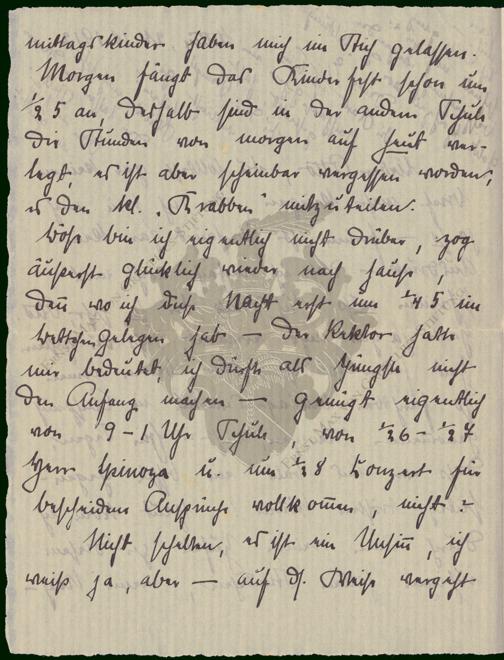 mittagskinder haben mich im Stich gelassen.
Morgen fängt das Kinderfest schon um
½ 5 an, deshalb sind in der andern Schule
die Stunden von morgen auf heut ver-
legt, es ist aber scheinbar vergessen worden,
es den kl. „Krabben" mitzuteilen.
Böse bin ich eigentlich nicht drüber, zog
äußerst glücklich wieder nach Hause,
deñ wo ich diese Nacht erst um ¼ 5 im
Bettchen gelegen hab — der Rektor hatte
mir bedeutet, ich dürfte als Jüngste nicht
den Anfang machen — genügt eigentlich
von 9-1 Uhr Schule, von ½6-½7
Herr Spinoza u. um ½8 Konzert für
bescheidene Ansprüche vollkom̅en, nicht?
Nicht schelten, es ist ein Unsin̅, ich
weiß ja, aber — auf ds. Weise vergeht